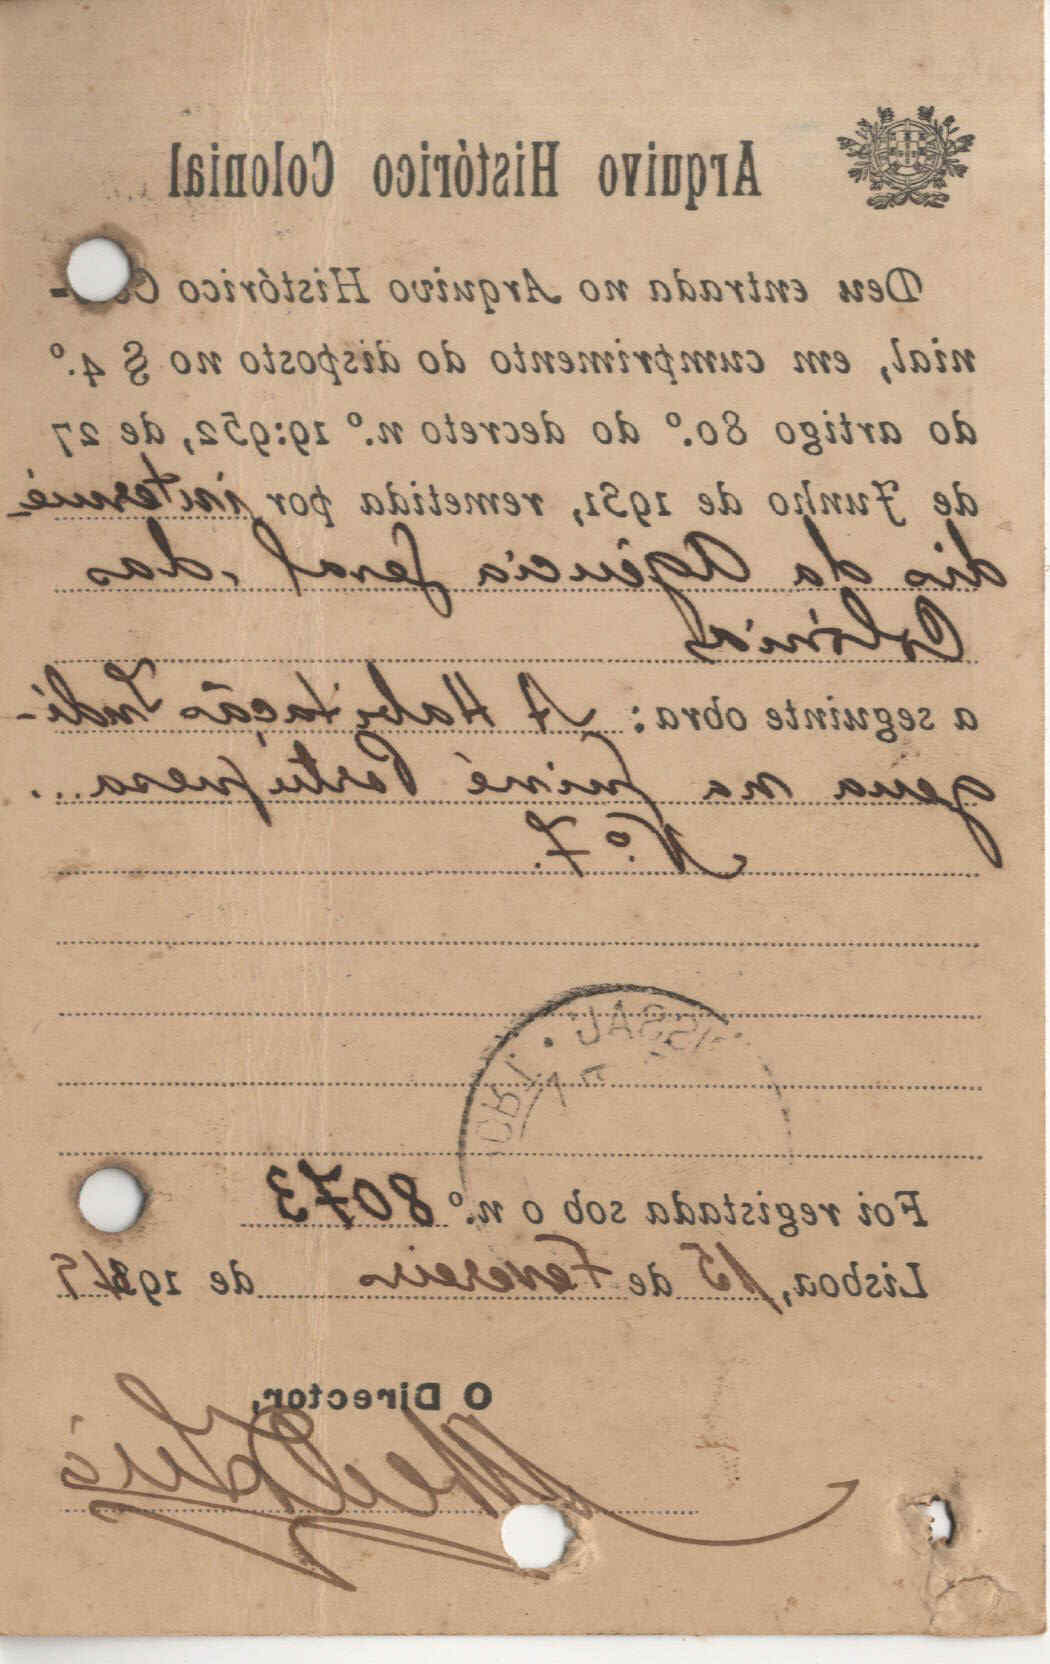 Arquivo Histórico Colonial
Deu entrada no Arquivo Histórico Co-
nial, em cumprimento do disposto no § 4.º
do artigo 80.º do decreto n.º 19:952, de 27
de Junho de 1931, remetida por intermé-
dio da Agência Geral das
Colónias
a seguinte obra: A Habitação Indí-
gena na Guiné Portuguesa...
N.º 7.
Foi registada sob o n.º 8073
Lisboa, 15 de Fevereiro de 1949
O Director,